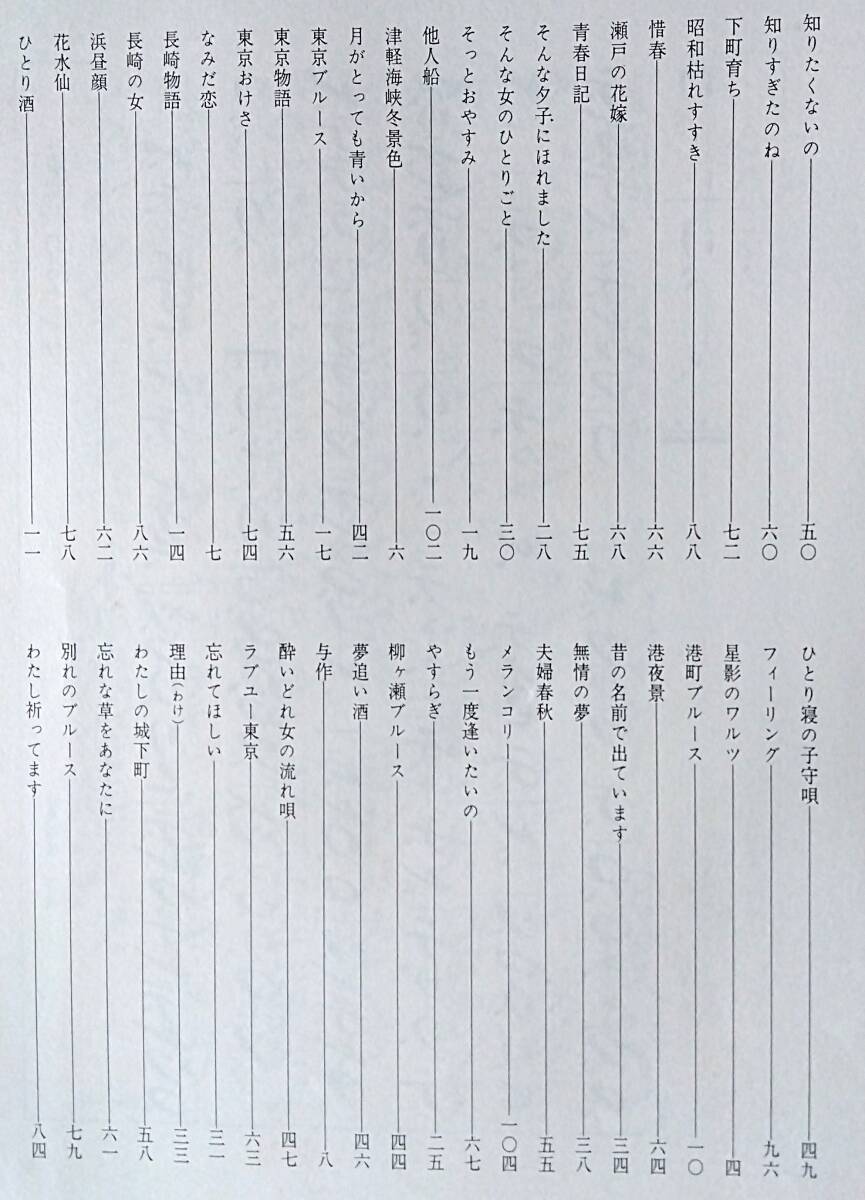 知りたくないの 五〇
知りすぎたのね 六〇
下町育ち 七二
昭和枯れすすき 八八
惜春 六六
瀬戸の花嫁 六八
青春日記 七五
そんな夕子にほれました 二八
そんな女のひとりごと 三〇
そっとおやすみ 一九
他人船 一〇二
津軽海峡冬景色 六
月がとっても青いから 四二
東京ブルース 一七
東京物語 五六
東京おけさ 七四
なみだ恋 七
長崎物語 一四
長崎の女 八六
浜昼顔 六二
花水仙 七八
ひとり酒 一一
ひとり寝の子守唄 四九
フィーリング 九六
星影のワルツ 四
港町ブルース 一〇
港夜景 六四
昔の名前で出ています 三四
無情の夢 三八
夫婦春秋 五五
メランコリー 一〇四
もう一度逢いたいの 六七
やすらぎ 二五
柳ヶ瀬ブルース 四四
夢追い酒 四六
与作 八
酔いどれ女の流れ唄 四七
ラブユー東京 六三
忘れてほしい 三一
理由(わけ) 三三
わたしの城下町 五八
忘れな草をあなたに 六一
別れのブルース 七九
わたし祈ってます 八四